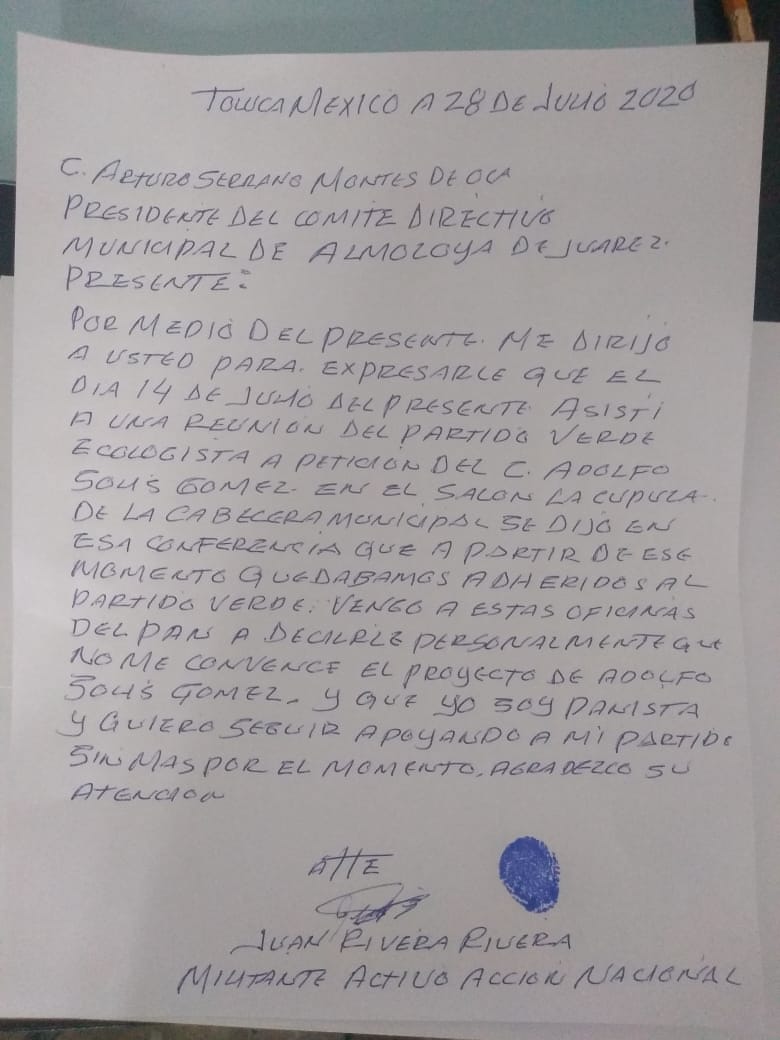 TOLUCA MEXICO A 28 DE JULIO 2020
C. ARTURO SERRANO MONTES DE OCA
PRESIDENTE DEL COMITE DIRECTIVO
MUNICIPAL DE ALMOLOYA DE JUAREZ.
PRESENTE:
POR MEDIO DEL PRESENTE. ME DIRIJO
A USTED PARA. EXPRESARLE QUE EL
DIA 14 DE JULIO DEL PRESENTE ASISTI
A UNA REUNION DEL PARTIDO VERDE
ECOLOGISTA A PETICION DEL C. ADOLFO
SOLIS GOMEZ. EN EL SALON LA CUPULA.
DE LA CABECERA MUNICIPAL SE DIJO EN
ESA CONFERENCIA QUE A PARTIR DE ESE
MOMENTO QUEDABAMOS ADHERIDOS AL
PARTIDO VERDE. VENGO A ESTAS OFICINAS
DEL PAN A DECIRLE PERSONALMENTE QUE
NO ME CONVENCE EL PROYECTO DE ADOLFO
SOLIS GOMEZ. Y QUE YO SOY PANISTA
Y QUIERO SEGUIR APOYANDO A MI PARTIDO
SIN MAS POR EL MOMENTO, AGRADEZCO SU
ATENCION
ATTE
JUAN RIVERA RIVERA
MILITANTE ACTIVO ACCION NACIONAL